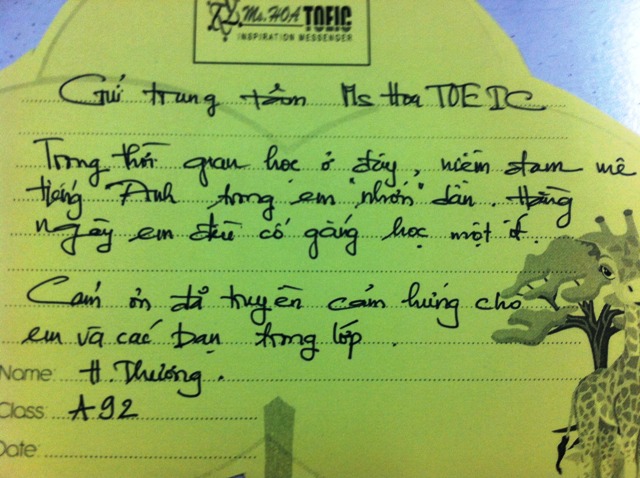 Ms. HOA TOEIC
INSPIRATION MESSENGER
Gửi trung tâm Ms Hoa TOEIC
Trong thời gian học ở đây, niềm đam mê
tiếng Anh trong em "nhớn" dần. Hằng
ngày em đều cố gắng học một ít.
Cám ơn đã truyền cảm hứng cho
em và các bạn trong lớp.
Name: H. Thương.
Class: A92
Date: